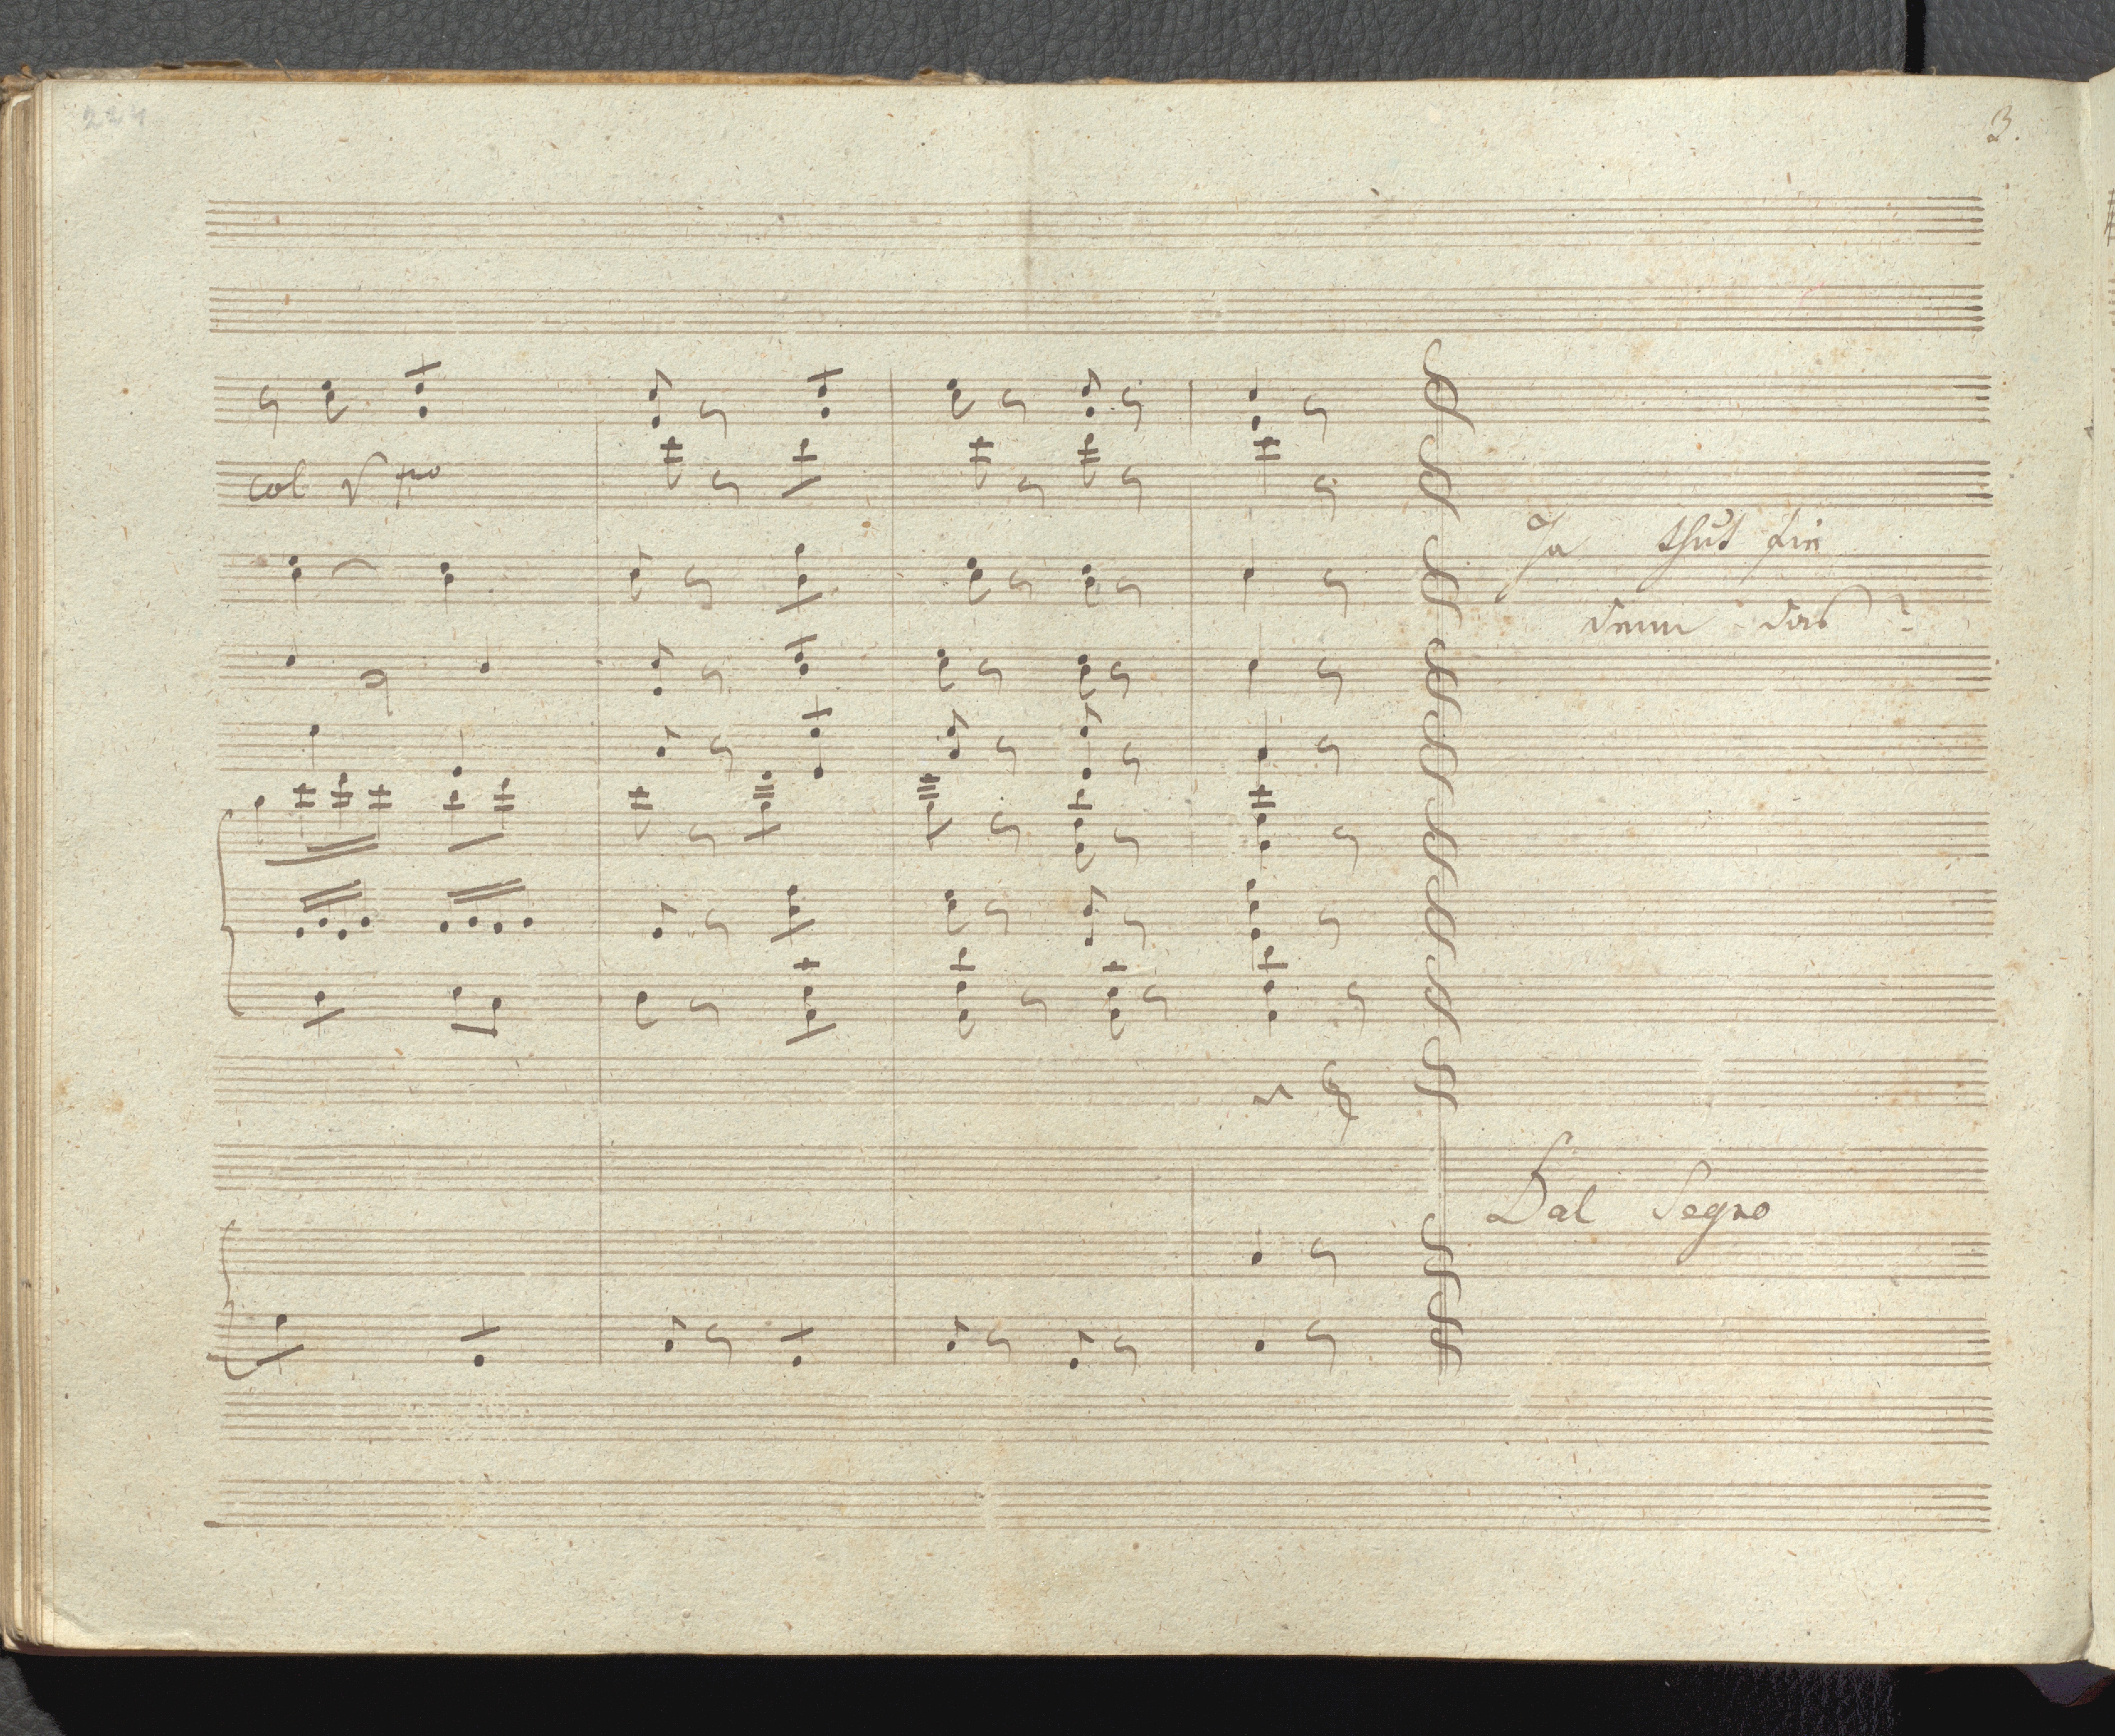 224
3.
col V pmo
Ja thut sie
denn das?
Dal Segno